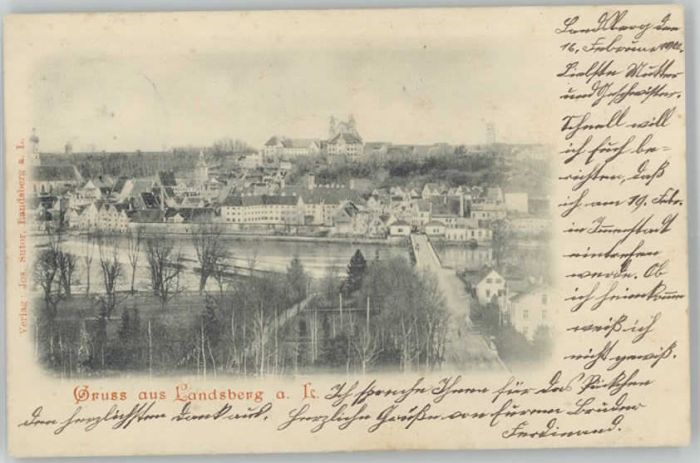 Landsberg den
16. Februar 1900.
Liebste Mutter
und Geschwister.
Schnell will
ich Euch be-
richten, daß
ich am 19. Febr.
in Immenstadt
eintreffen
werde. Ob
ich heimkomme
weiß ich
nicht gewiß.
Verlag: Jos. Sutor, Landsberg a. L.
Gruss aus Landsberg a. L.
Ich spreche Ihnen für das
den herzlichsten Dank aus. Herzliche Grüße von Eurem Bruder
Ferdinand.